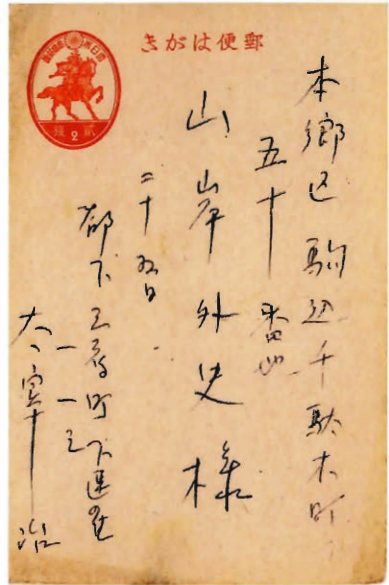 郵便はがき
本郷区駒込千駄木町
五十番地
山岸外史様
二十五日
都下三鷹町下連雀
一一三
太宰治